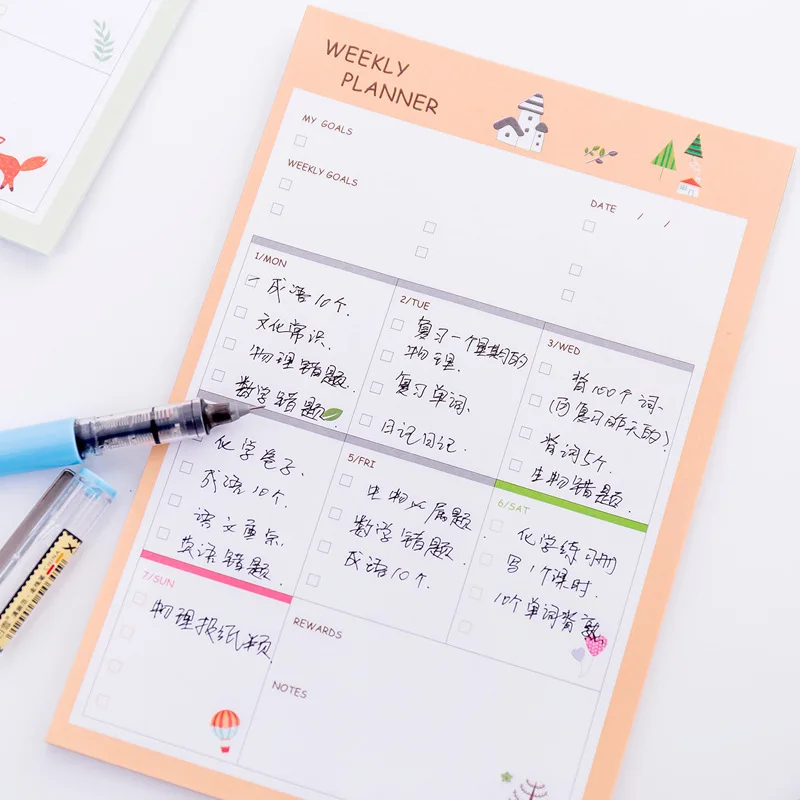 WEEKLY
PLANNER
MY GOALS
WEEKLY GOALS
DATE / /
1/MON
成语10个.
文化常识.
物理错题.
数学错题
2/TUE
复习一个星期的
物理.
复习单词.
日记日记.
3/WED
背100个词.
(可复习昨天的)
背词5个.
生物错题.
化学卷子.
成语10个.
语文
英语错题.
5/FRI
生物 属题
数学错题.
成语10个.
6/SAT
化学练习册
写1个课时.
10个单词背熟
7/SUN
物理报纸
REWARDS
NOTES